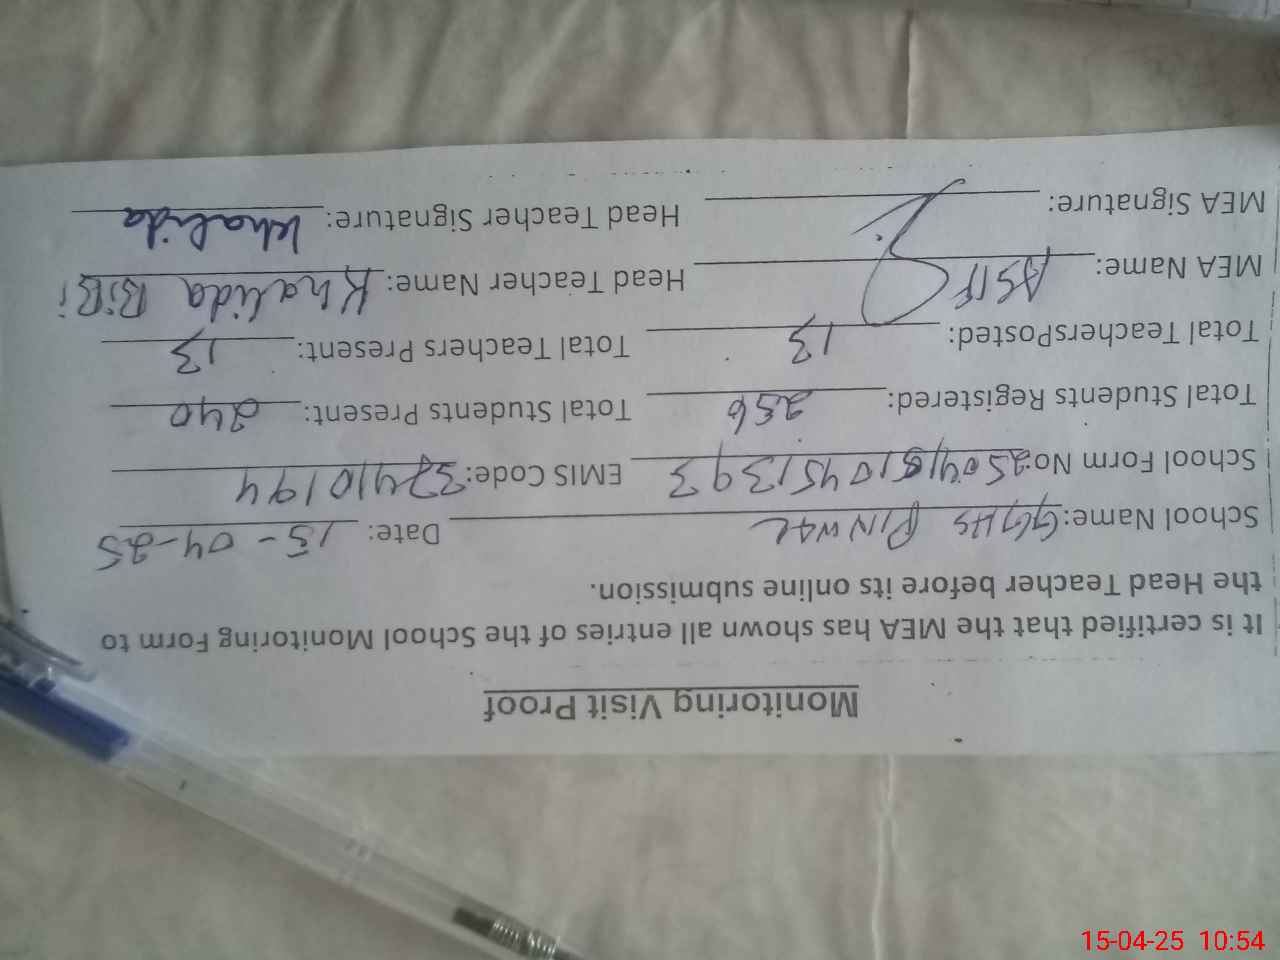 Monitoring Visit Proof
It is certified that the MEA has shown all entries of the School Monitoring Form to
the Head Teacher before its online submission.
School Name: GGHS PINWAL Date: 15-04-25
School Form No: EMIS Code: 37410194
Total Students Registered: 256 Total Students Present: 240
Total TeachersPosted: 13 Total Teachers Present: 13
MEA Name: ASIF Head Teacher Name: Khalida BiBi
MEA Signature: Head Teacher Signature: Khalida
15-04-25 10:54